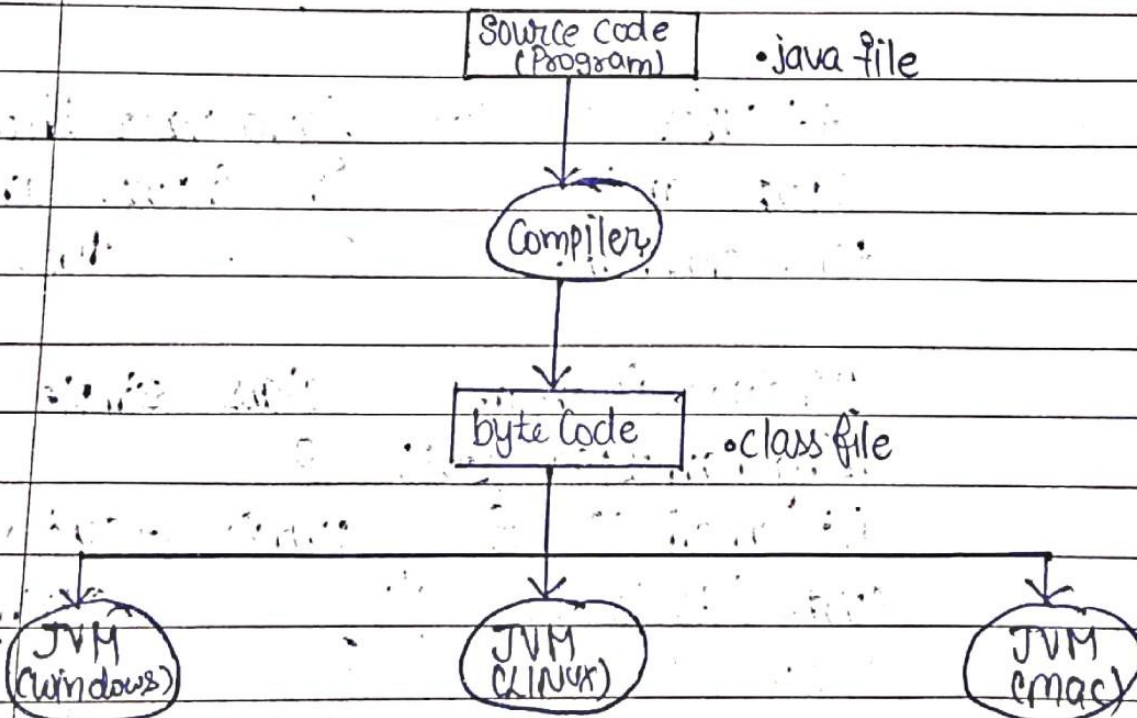 Source code
(Program)
.java file
Compiler
byte Code
.class file
JVM
(windows)
JVM
(LINUX)
JVM
(mac)